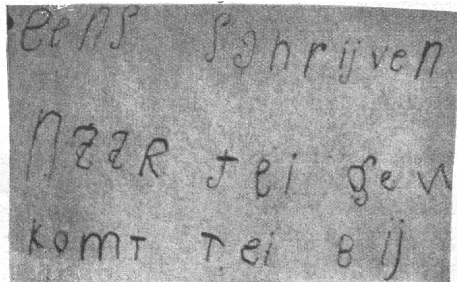 eens schrijven
naar tei gen
komt tei Bij